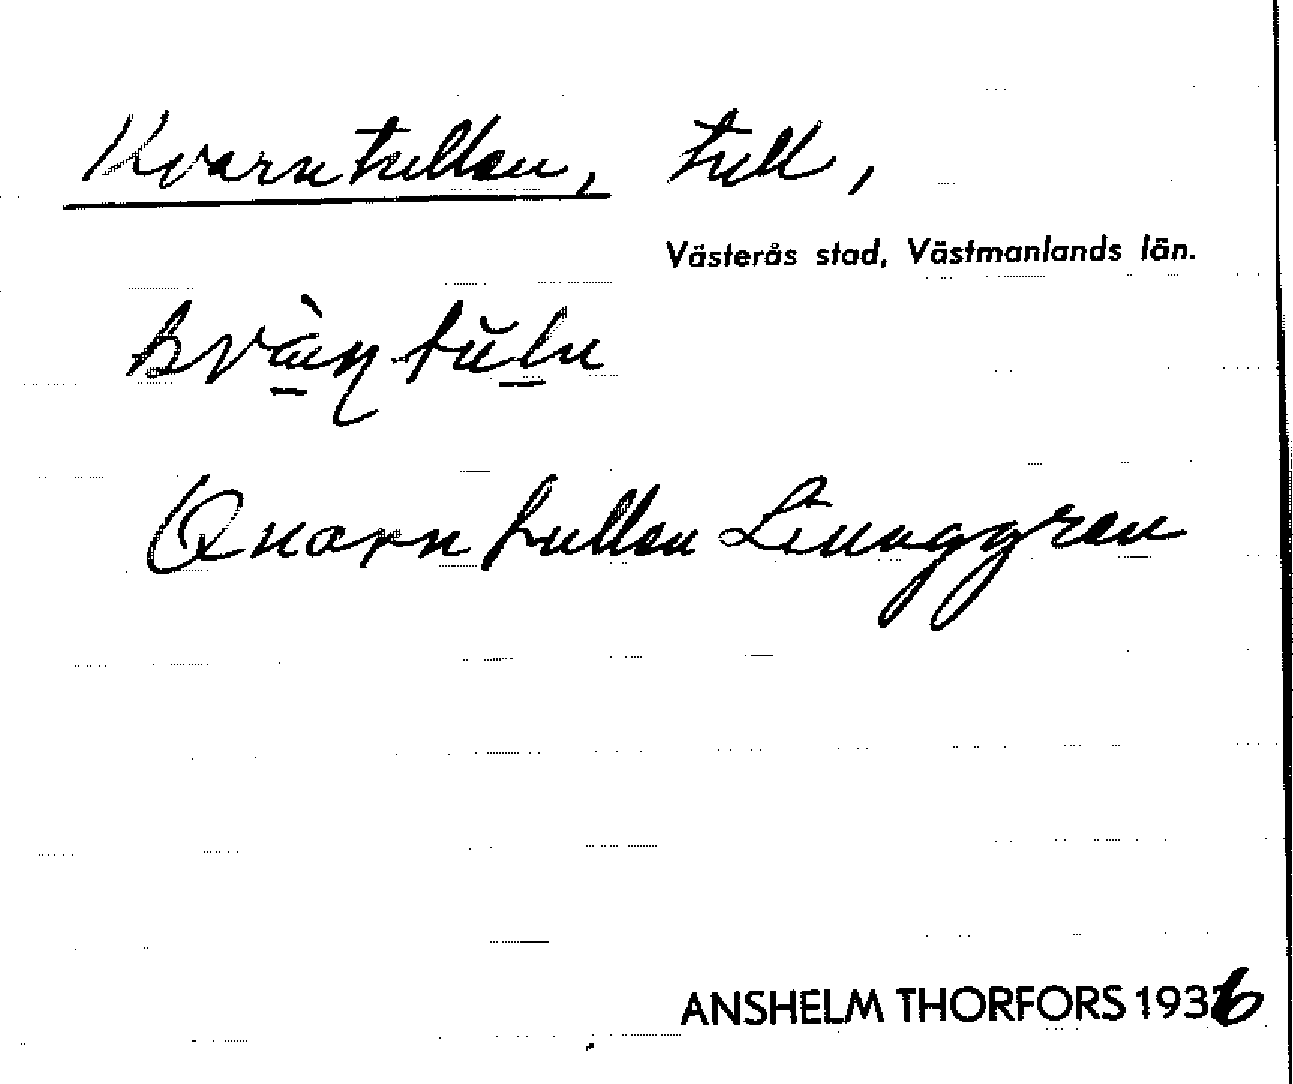 Kvarntullen, tull,
Västerås stad, Västmanlands län.
Quarntullen Liunggren
ANSHELM THORFORS 1936